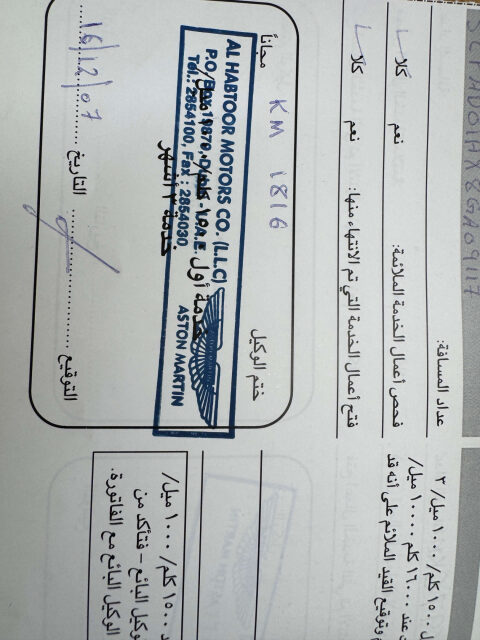 عداد المسافة:
فحص أعمال الخدمة الملائمة: نعم كلا
فتح أعمال الخدمة التي تم الانتهاء منها: نعم كلا
KM 1816
ختم الوكيل
مجاناً
AL HABTOOR MOTORS CO. (L.L.C)
P.O. Box 19870, Dubai - U.A.E.
Tel.: 2854100, Fax : 2854030,
ASTON MARTIN
خدمة أول
خدمة ٣ أشهر
التوقيع التاريخ 16/12/07
١٥٠٠ كلم/ ١٠٠٠ ميل/ ٣
عند ١٦٠٠٠ كلم ١٠٠٠٠ ميل/
وتوقيع القيد الملائم على أنه قد
١٥٠٠ كلم/ ١٠٠٠ ميل/
الوكيل البائع - فتأكد من
الوكيل البائع مع الفاتورة.